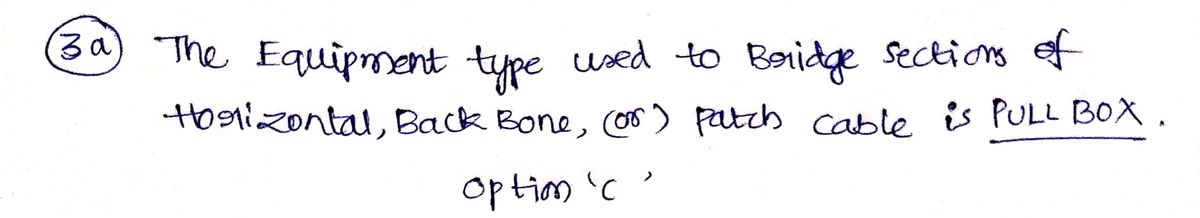 3a The Equipment type used to Bridge Sections of
Horizontal, Back Bone, (or) Patch cable is PULL BOX.
option 'c'